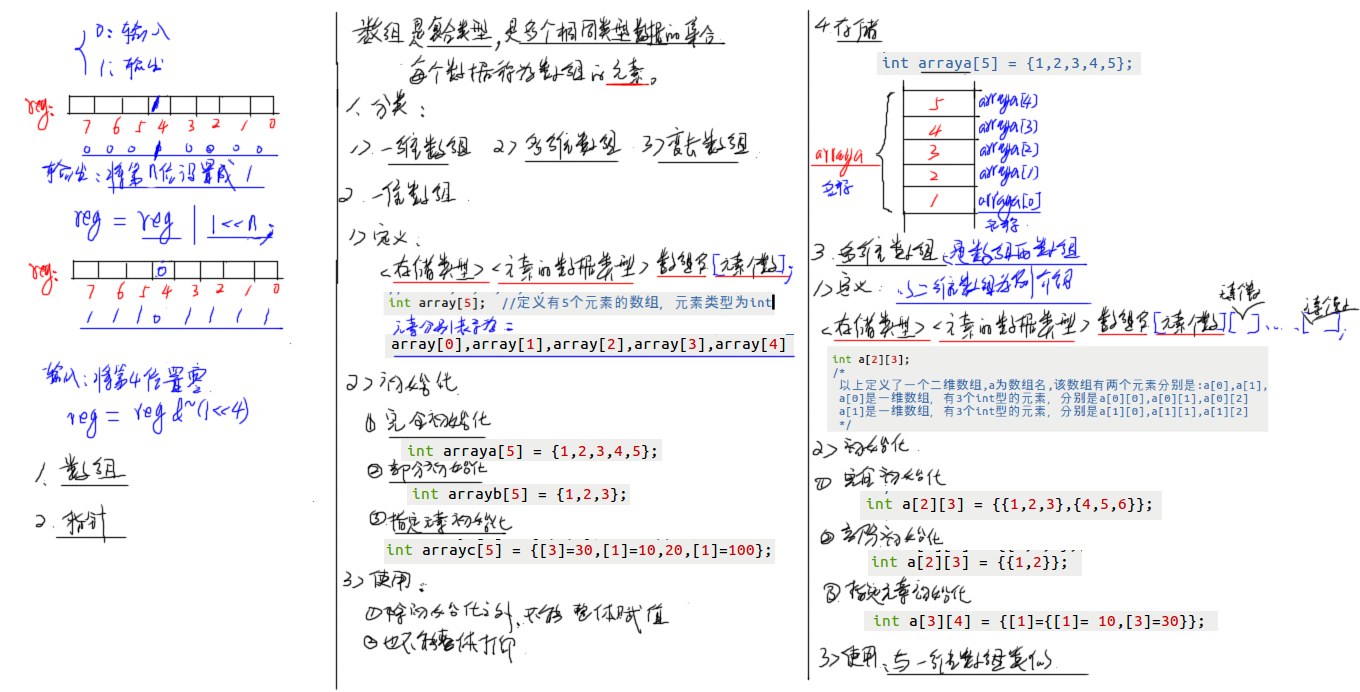 0: 输入
1: 输出
reg:
7 6 5 4 3 2 1 0
0 0 0 1 0 0 0 0
输出:将第n位设置成1
reg = reg | 1<<n;
reg:
0
7 6 5 4 3 2 1 0
1 1 1 0 1 1 1 1
输入:将第4位置零
reg = reg &~(1<<4)
1. 数组
2. 指针
数组是复合类型,是多个相同类型数据的集合
每个数据称为数组的元素。
1. 分类:
1> 一维数组 2> 多维数组 3> 变长数组
2. 一维数组
1> 定义:
<存储类型> <元素的数据类型> 数组名[元素个数];
int array[5]; //定义有5个元素的数组, 元素类型为int
元素分别表示为:
array[0],array[1],array[2],array[3],array[4]
2> 初始化
① 完全初始化
int arraya[5] = {1,2,3,4,5};
② 部分初始化
int arrayb[5] = {1,2,3};
③ 指定元素初始化
int arrayc[5] = {[3]=30,[1]=10,20,[1]=100};
3> 使用:
① 除初始化之外,不能整体赋值
② 也不能整体打印
4. 存储
int arraya[5] = {1,2,3,4,5};
5 arraya[4]
4 arraya[3]
arraya 3 arraya[2]
2 arraya[1]
1 arraya[0]
3. 多维数组:是数组的数组
1> 定义: 以二维数组为例介绍
元素个数 元素个数
<存储类型> <元素的数据类型> 数组名[元素个数][ ]....[ ];
int a[2][3];
/*
以上定义了一个二维数组,a为数组名,该数组有两个元素分别是:a[0],a[1],
a[0]是一维数组, 有3个int型的元素, 分别是a[0][0],a[0][1],a[0][2]
a[1]是一维数组, 有3个int型的元素, 分别是a[1][0],a[1][1],a[1][2]
*/
2> 初始化
① 完全初始化
int a[2][3] = {{1,2,3},{4,5,6}};
② 部分初始化
int a[2][3] = {{1,2}};
③ 指定元素初始化
int a[3][4] = {[1]={[1]= 10,[3]=30}};
3> 使用:与一维数组类似